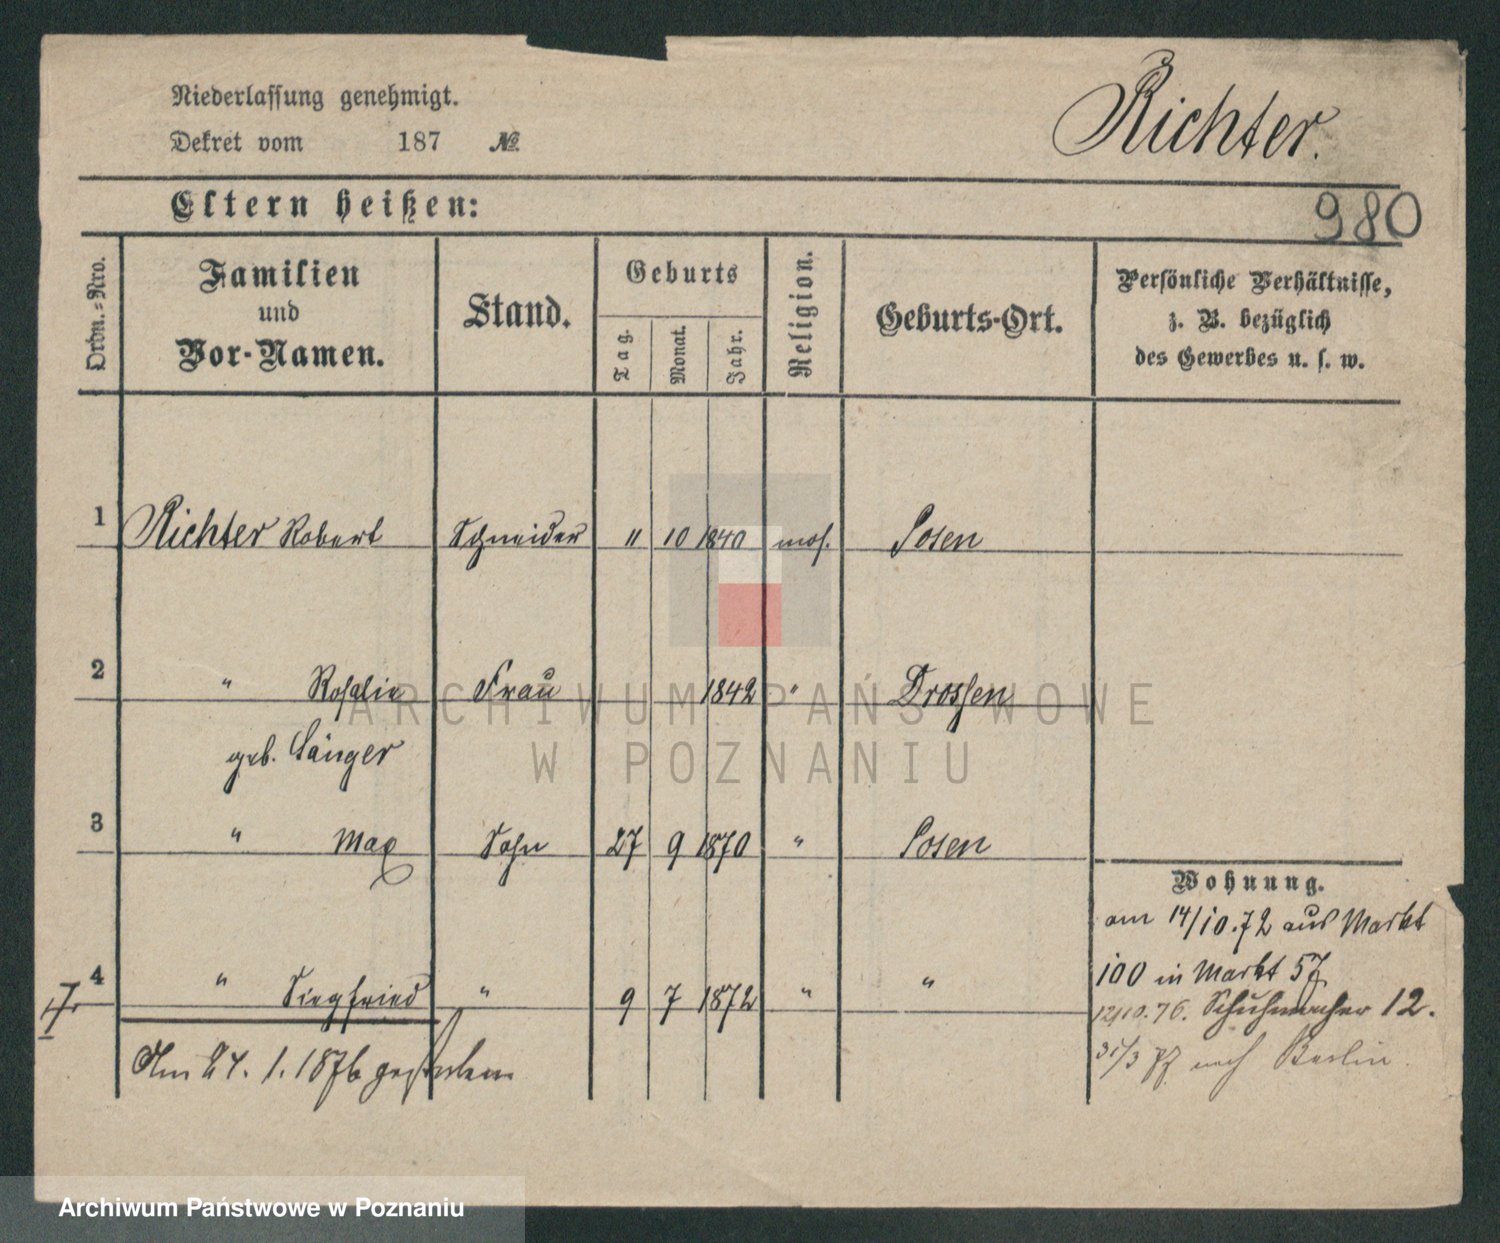 Niederlassung genehmigt.
Dekret vom 187 №
Richter.
Eltern heißen:
980
Ordn.-Nro.
Familien und Vor-Namen.
Stand.
Geburts
Tag.
Monat.
Jahr.
Religion.
Geburts-Ort.
Persönliche Verhältnisse,
z. B. bezüglich
des Gewerbes u. s. w.
1 Richter Robert Schneider 11 10 1840 mos. Posen
2 " Rosalie Frau 1842 " Drossen
geb. Sänger
3 " Max Sohn 27 9 1870 " Posen
4 " Siegfried " 9 7 1872 " "
Am 24. 1. 1876 gestorben
Wohnung.
am 14/10.72 aus Markt
100 in Markt 57
12/10.76. Schuhmacher 12.
31/3 77 nach Berlin.
ARCHIWUM PAŃSTWOWE
W POZNANIU
Archiwum Państwowe w Poznaniu